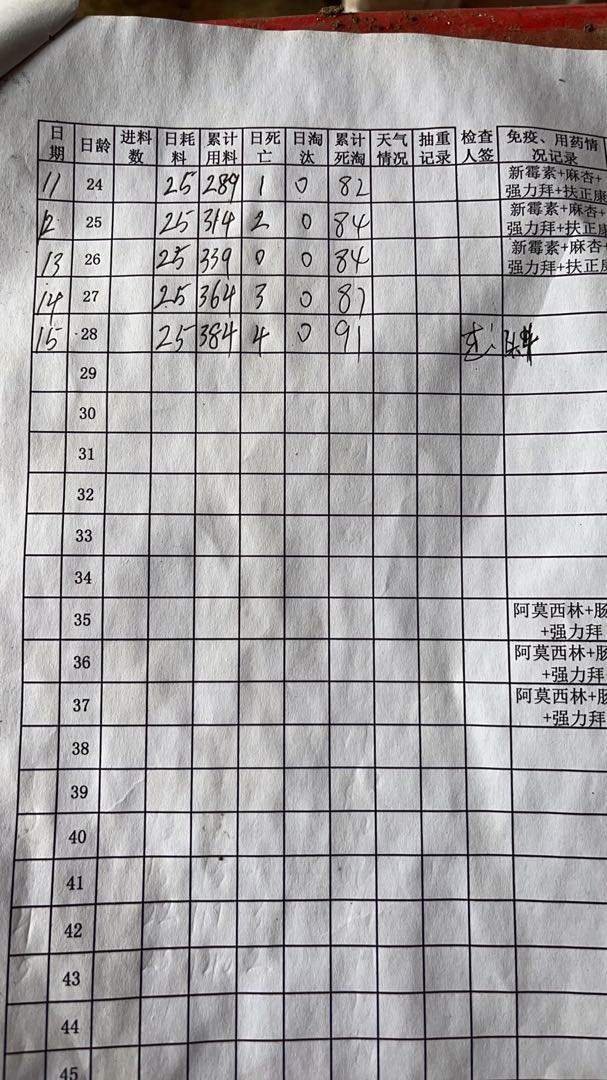 日期 日龄 进料数 日耗料 累计用料 日死亡 日淘汰 累计死淘 天气情况 抽重记录 检查人签 免疫、用药情况记录
11 24 25 289 1 0 82 新霉素+麻杏+强力拜+扶正康
12 25 25 314 2 0 84 新霉素+麻杏+强力拜+扶正康
13 26 25 339 0 0 84 新霉素+麻杏+强力拜+扶正康
14 27 25 364 3 0 87
15 28 25 384 4 0 91 料
29
30
31
32
33
34
35 阿莫西林+肠+强力拜
36 阿莫西林+肠+强力拜
37 阿莫西林+肠+强力拜
38
39
40
41
42
43
44
45